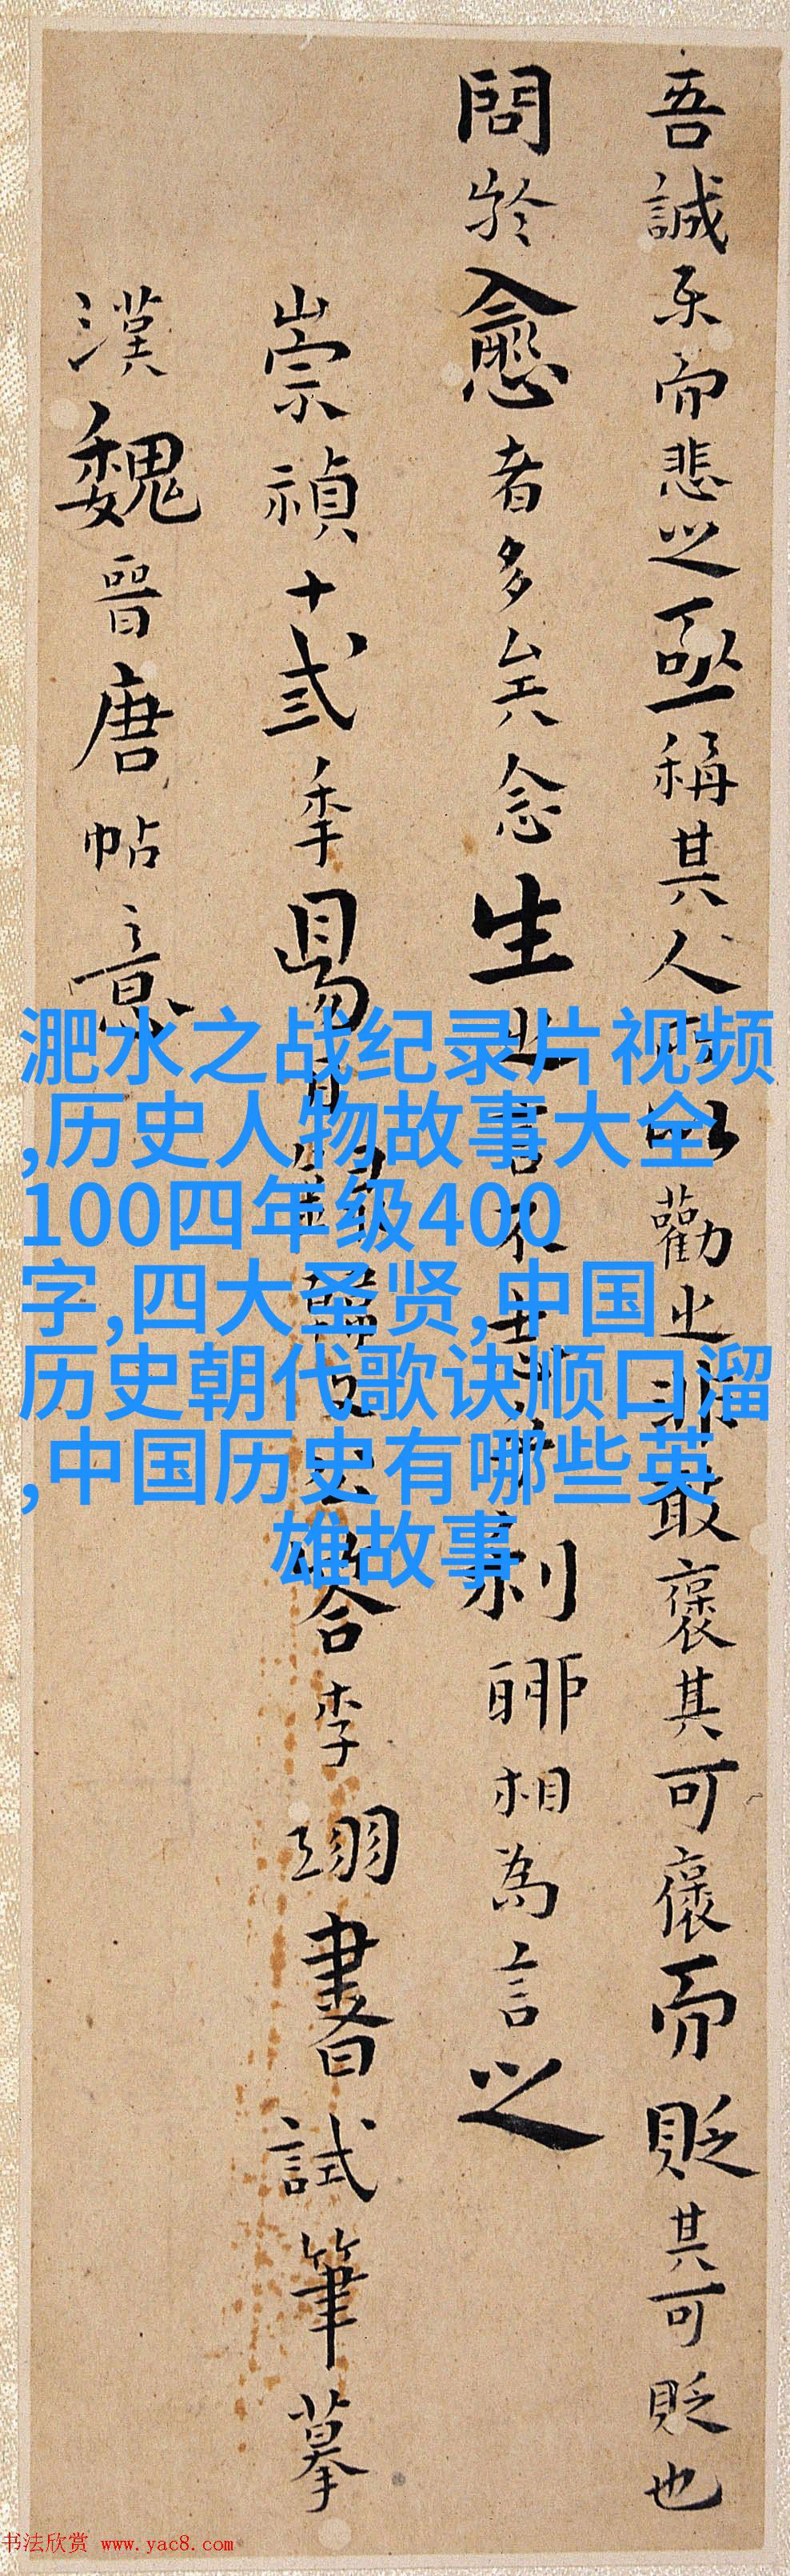 吾誠樂而悲之亟稱其人
勸之非敢褒其可褒而貶其可貶也
問於愈者多矣念生之言不
相為言之
崇禎十弍季
李翊書試筆摹
漢魏晉唐帖意
淝水之战纪录片视频
,历史人物故事大全
100四年级400
字,四大圣贤,中国
历史朝代歌诀顺口溜
,中国历史有哪些英
雄故事
书法欣赏 www.yac8.com